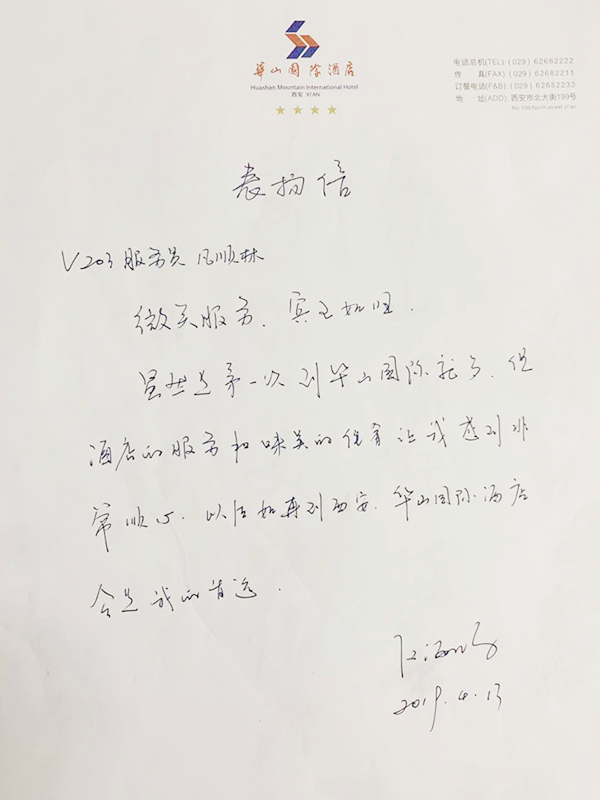 華山国際酒店
Huashan Mountain International Hotel
西安 XI'AN
电话总机(TEL): (029) 62682222
传 真(FAX): (029) 62682211
订餐电话(F&B): (029) 62682233
地 址(ADD): 西安市北大街199号
No.199 North street xi'an
表扬信
V203 服务员 凡顺林
微笑服务、宾至如归.
虽然是第一次到华山国际就歺, 但
酒店的服务和味美的佳肴让我感到非
常顺心. 以后如再到西安, 华山国际酒店
会是我的首选.
2019.4.13